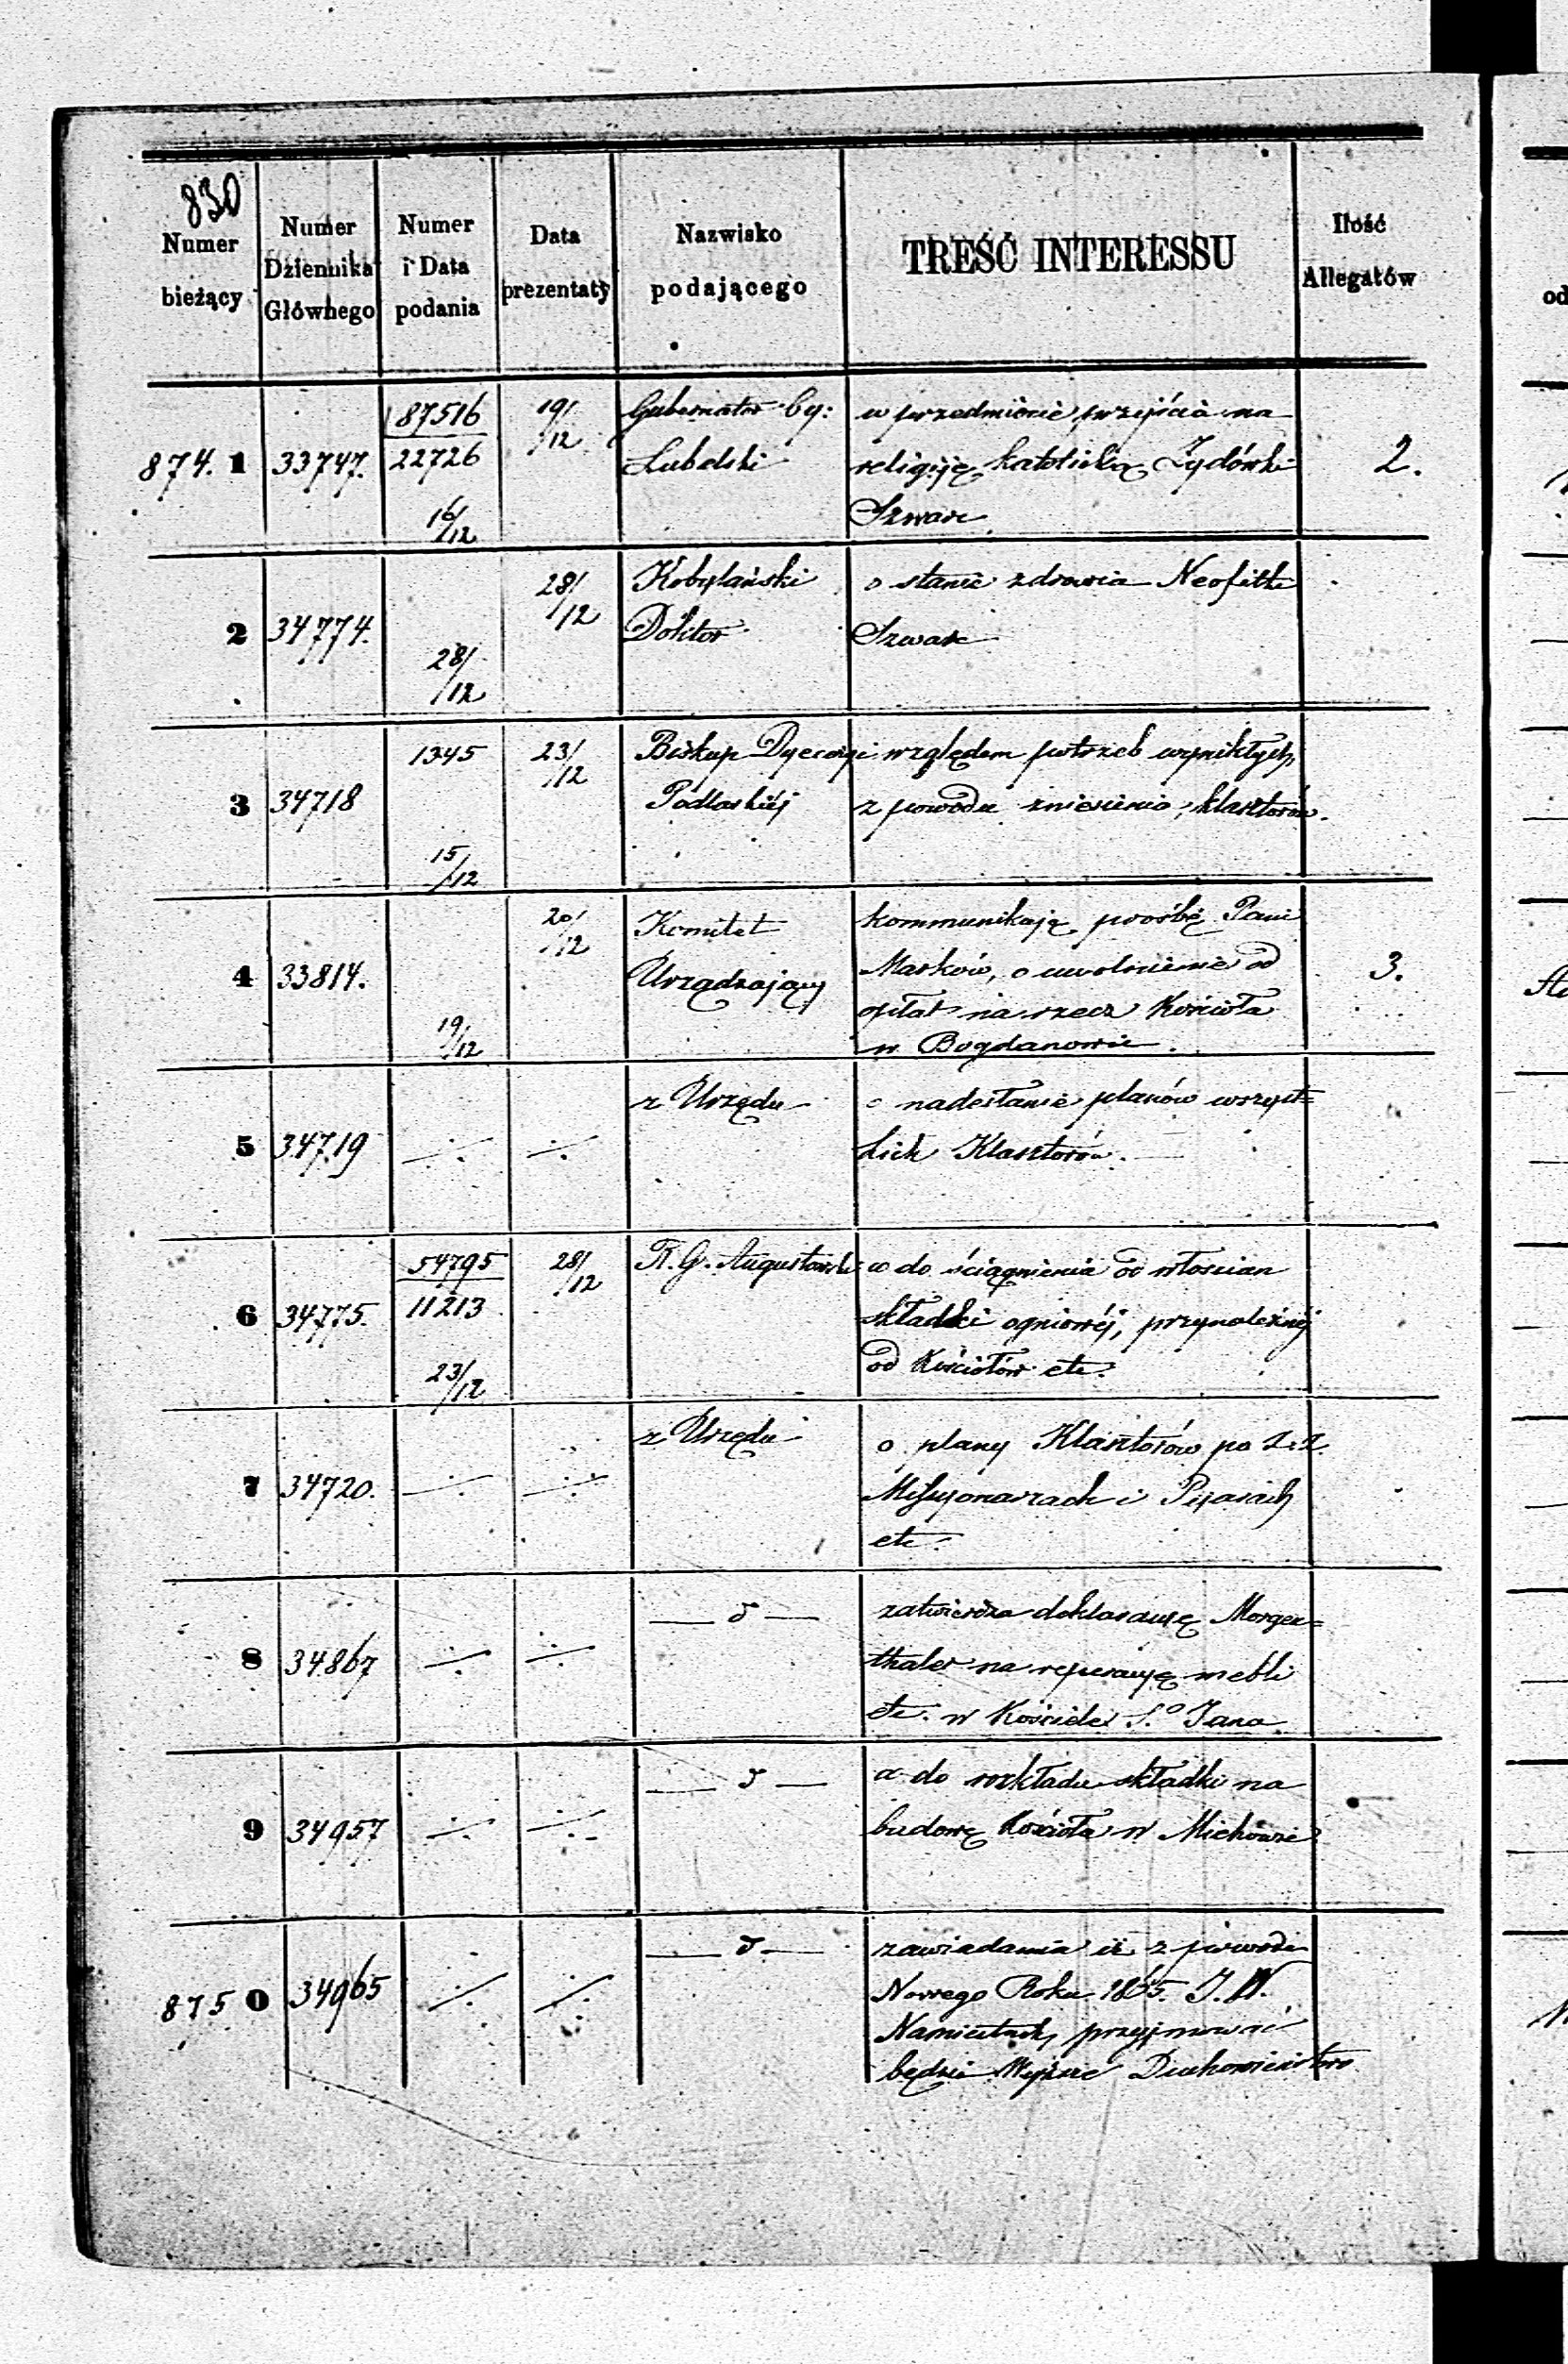 830
Numer bieżący
Numer Dziennika Głównego
Numer i Data podania
Data prezentaty
Nazwisko podającego
TREŚĆ INTERESSU
Ilość Allegatów
od
874. 1 33747. 87516 19/12 Gubernator Cy: w przedmiocie przejścia na
22726 Lubelski religiję katolicką Żydówki 2.
16/12 Szwarc
2 34774. 28/12 Kobylański o stanie zdrowia Neofitki
28/12 Doktor Szwarc
3 34718 1345 23/12 Biskup Dyecezyi względem potrzeb wynikłych
15/12 Podlaskiéj z powodu zniesienia klasztorów.
4 33814. 20/12 Komitet kommunikają prośbę Pani
19/12 Urządzający Marków, o uwolnienie od 3.
opłat na rzecz Kościoła
w Bogdanowie.
5 34719 z Urzędu o nadesłanie planów wszyst=
kich Klasztorów.
6 34775. 54795 28/12 R. G. Augustowski co do ściągnienia od włościan
11213 składki ogniowéj, przynależnéj
23/12 od Kościołów etc.
7 34720. z Urzędu o plany Klasztorów po
Missyonarzach i Pijarach
etc.
8 34867 — d — zatwierdza deklaracyę Morgen=
thaler na reperacyę mebli
etc. w Kościele S.o Jana
9 34957 — d — co do rozkładu składki na
budowę Kościoła w Michowie
875 0 34965 — d — zawiadamia iż z powodu
Nowego Roku 1865. J. W.
Namiestnik przyjmować
będzie Wyższe Duchowieństwo